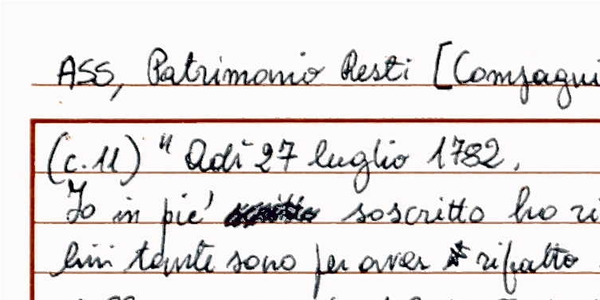 ASS, Patrimonio Resti [Compagni
(c. 11) "Adì 27 luglio 1782,
Io in pie' soscritto ho ri
lini tante sono per aver rifatto